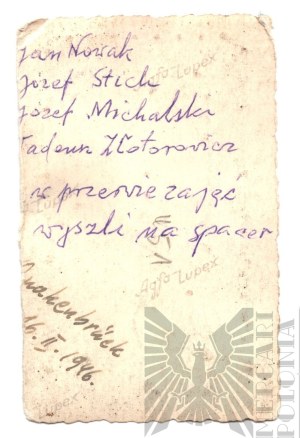 Jan Nowak
Józef Stich
Józef Michalski
Tadeusz Złotorowicz
w przerwie zajęć
wyszli na spacer
Quakenbrück
16.II.1946.
Agfa Lupex
Agfa Lupex
MERCARI
POLONIA